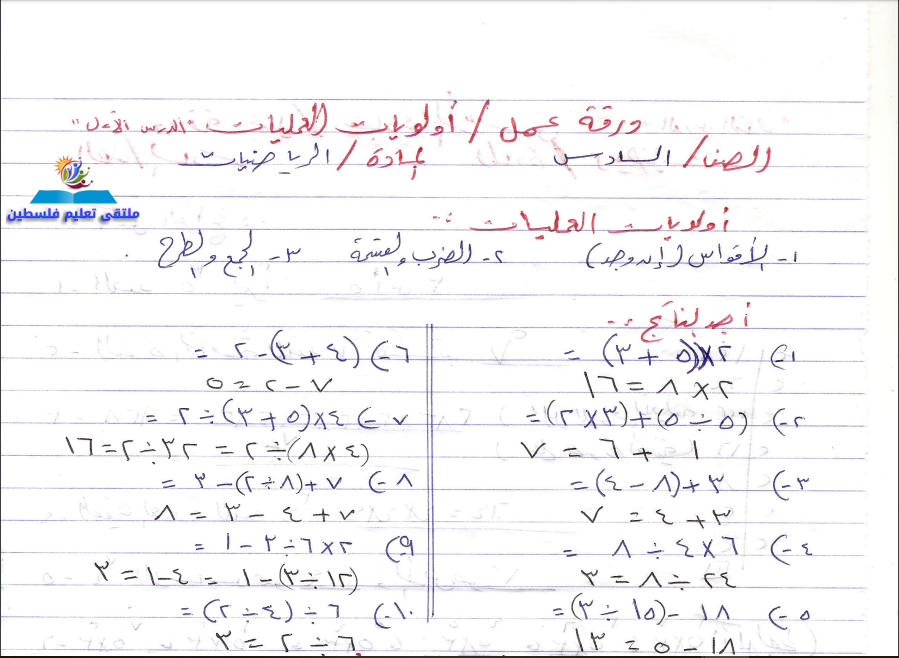 ورقة عمل / أولويات العمليات "الدرس الأول"
الصف / السادس المادة / الرياضيات
ملتقى تعليم فلسطين
أولويات العمليات :-
١- الأقواس (إن وجد) ٢- الضرب والقسمة ٣- الجمع والطرح .
أجد الناتج :-
١-) ٢×(٥ + ٣) =
٢ × ٨ = ١٦
٢-) (٥ ÷ ٥)+(٣×٢) =
١ + ٦ = ٧
٣-) ٣+(٨ - ٤) =
٣+٤ = ٧
٤-) ٦×٤ ÷ ٨ =
٢٤ ÷ ٨ = ٣
٥-) ١٨ -(١٥ ÷ ٣) =
١٨ - ٥ = ١٣
٦-) (٤ + ٣)-٢ =
٧ - ٢ = ٥
٧-) ٤×(٥+٣)÷٢ =
(٤×٨)÷٢ = ٣٢÷٢=١٦
٨-) ٧+(٨÷٢)-٣ =
٧+٤ -٣ = ٨
٩) ٢×٦÷٣-١ =
(١٢÷٣)-١ = ٤-١=٣
١٠-) ٦ ÷ (٤ ÷ ٢) =
٦ ÷ ٢ = ٣